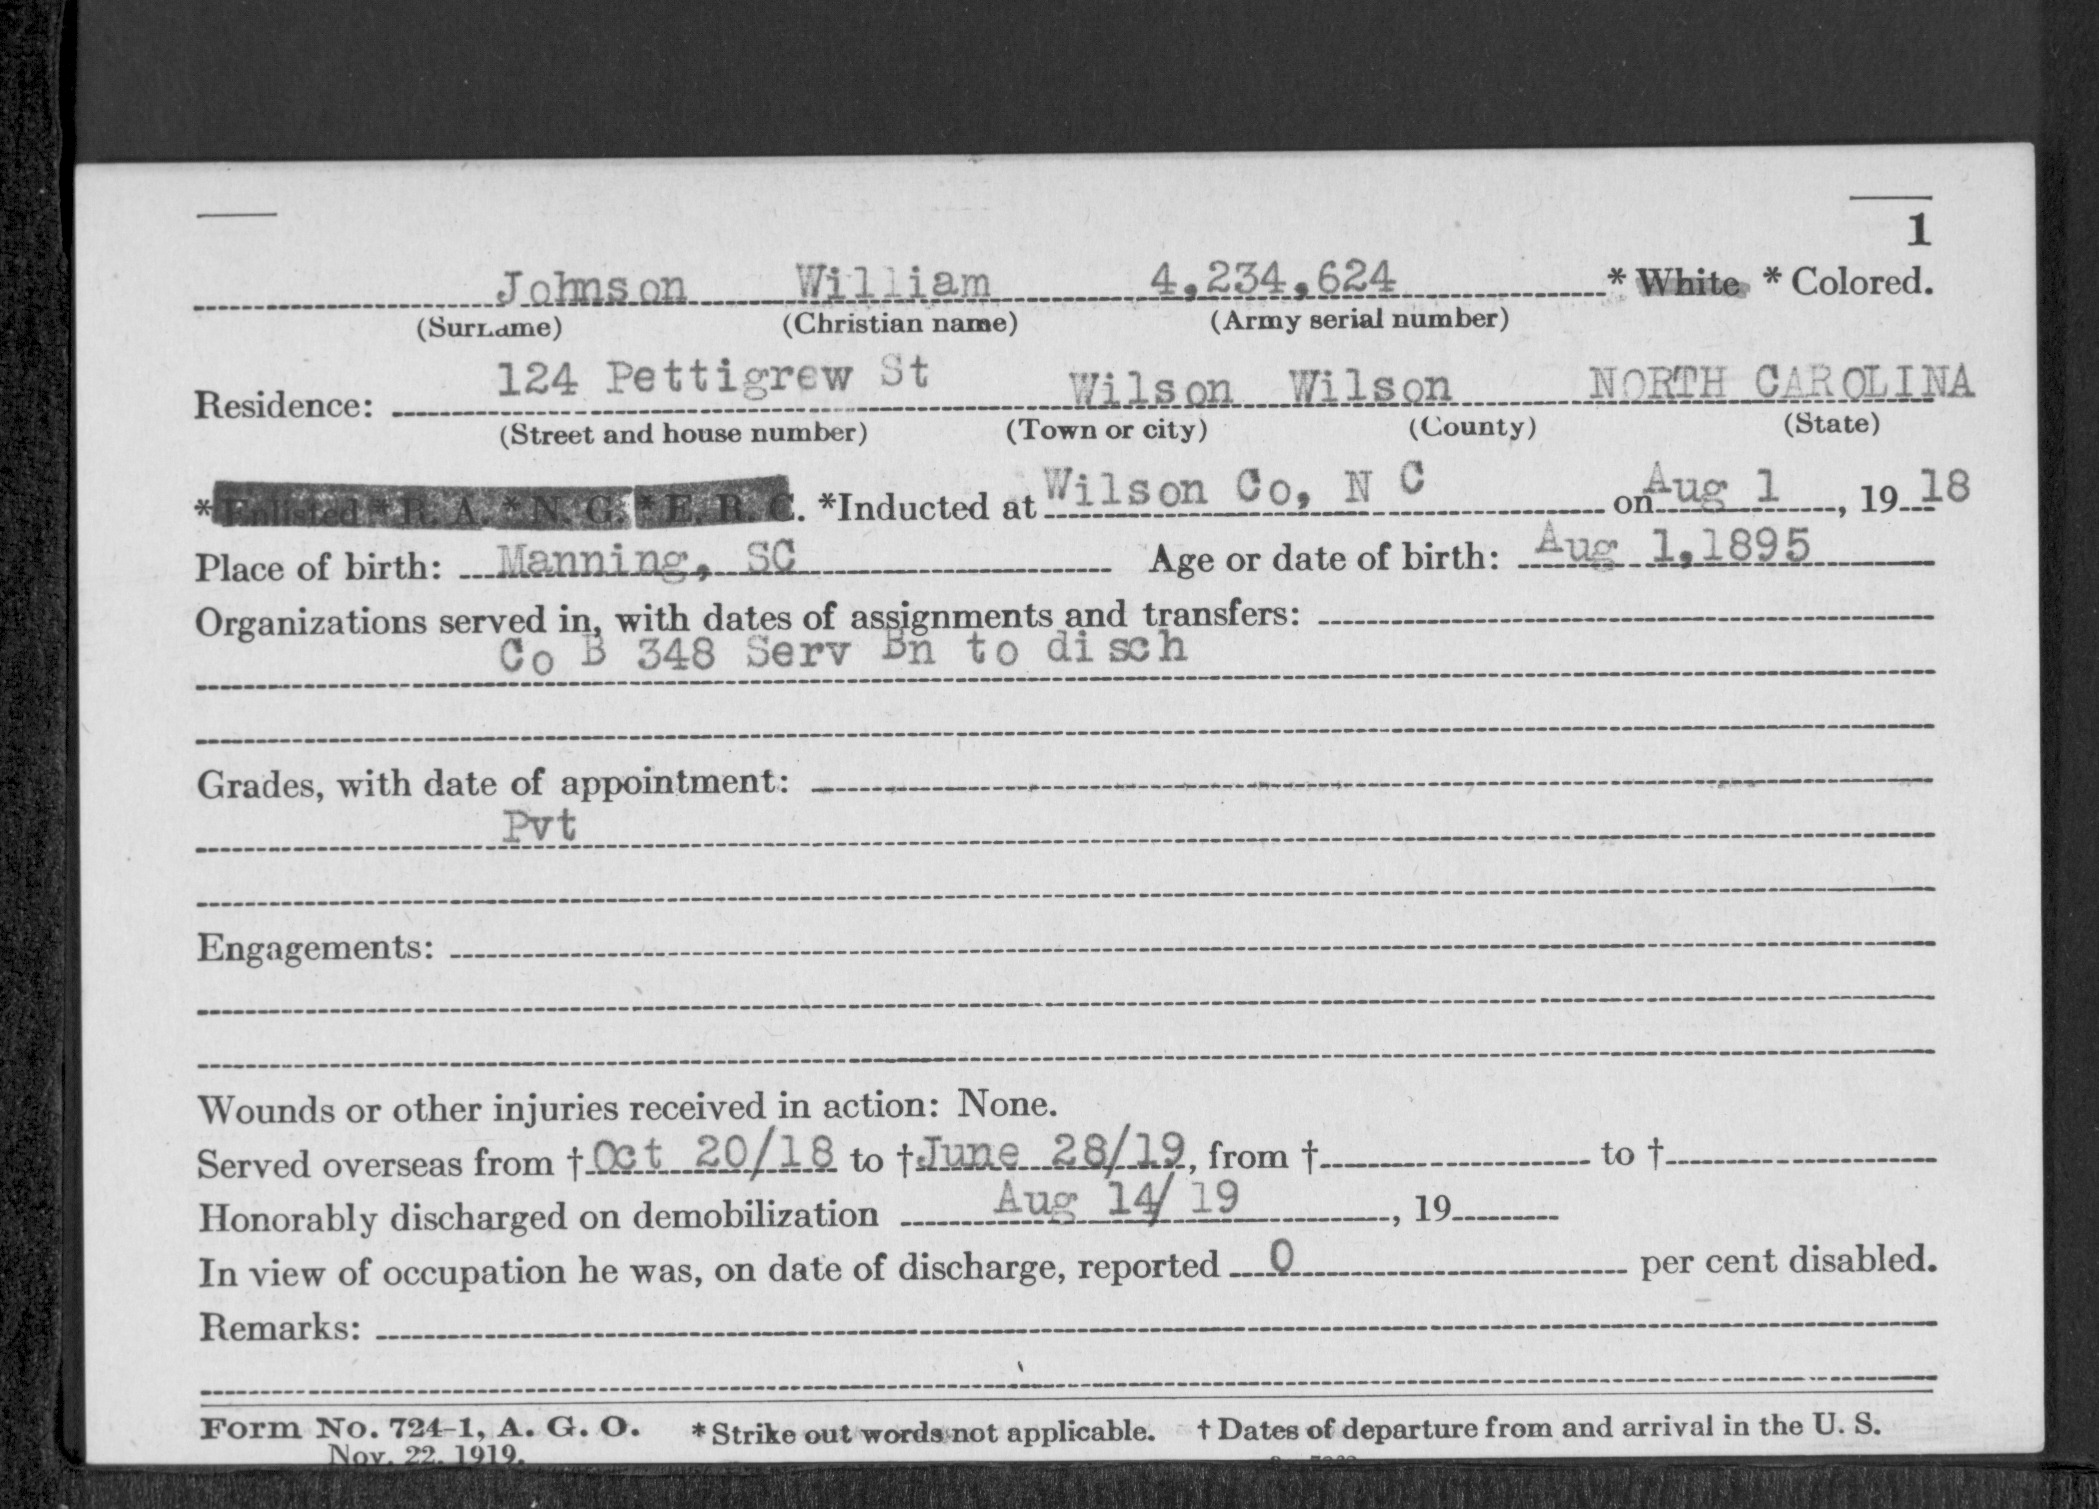 1
Johnson William 4,234,624 * White * Colored.
(Surname) (Christian name) (Army serial number)
Residence: 124 Pettigrew St Wilson Wilson NORTH CAROLINA
(Street and house number) (Town or city) (County) (State)
*Enlisted * R. A. * N. G. * E. R. C. *Inducted at Wilson Co, N C on Aug 1, 1918
Place of birth: Manning, SC Age or date of birth: Aug 1,1895
Organizations served in, with dates of assignments and transfers:
Co B 348 Serv Bn to disch
Grades, with date of appointment:
Pvt
Engagements:
Wounds or other injuries received in action: None.
Served overseas from † Oct 20/18 to † June 28/19, from † to †
Honorably discharged on demobilization Aug 14/ 19, 19
In view of occupation he was, on date of discharge, reported 0 per cent disabled.
Remarks:
Form No. 724-1, A. G. O. *Strike out words not applicable. † Dates of departure from and arrival in the U. S.
Nov. 22, 1919.